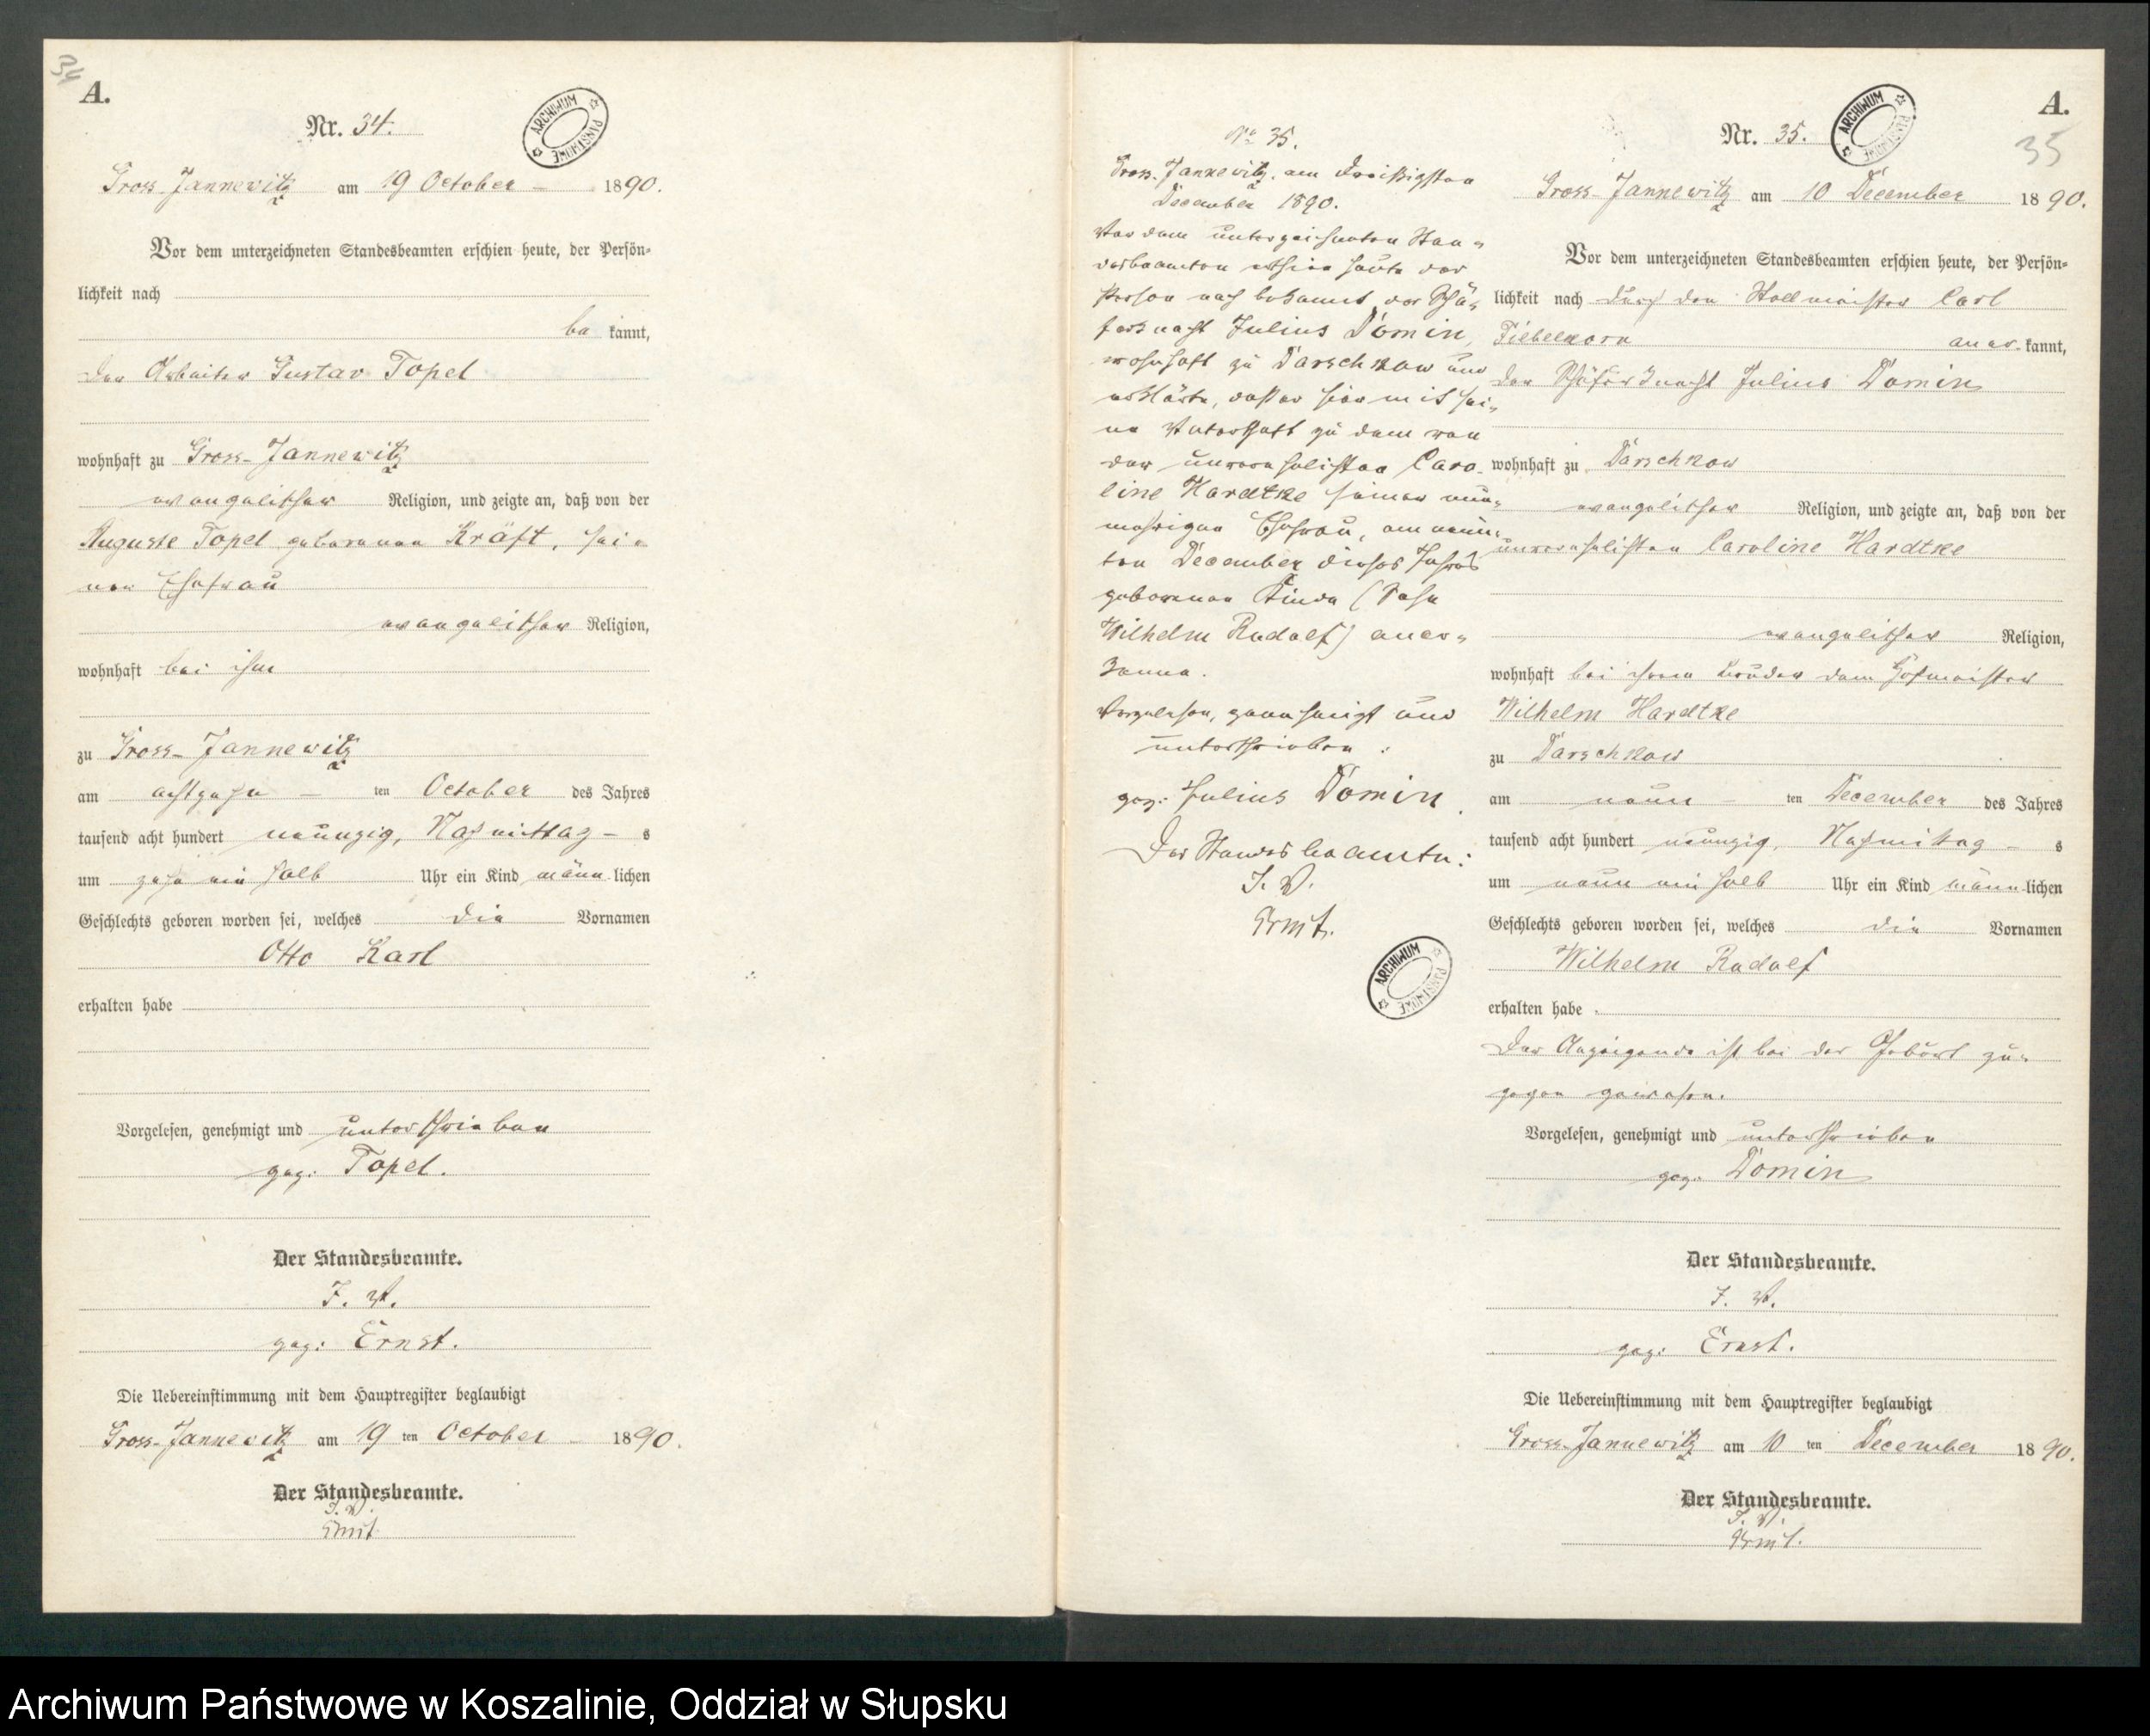 34
A.
Nr. 34.
ARCHIWUM PAŃSTWOWE
Gross-Jannewitz am 19 October 1890.
Vor dem unterzeichneten Standesbeamten erschien heute, der Persön-
lichkeit nach
be kannt,
der Arbeiter Gustav Topel
wohnhaft zu Gross-Jannewitz
evangelischer Religion, und zeigte an, daß von der
Auguste Topel geborenen Kräft, sei-
ner Ehefrau
evangelischer Religion,
wohnhaft bei ihm
zu Gross-Jannewitz
am achtzehn ten October des Jahres
tausend acht hundert neunzig, Nachmittag s
um zehn ein halb Uhr ein Kind männ lichen
Geschlechts geboren worden sei, welches die Vornamen
Otto Karl
erhalten habe
Vorgelesen, genehmigt und unterschrieben
gez: Topel.
Der Standesbeamte.
J. V.
gez: Ernst.
Die Uebereinstimmung mit dem Hauptregister beglaubigt
Gross-Jannewitz am 19 ten October 1890.
Der Standesbeamte.
J. V.
Ernst
No 35.
Gross-Jannewitz, am dreißigsten
December 1890.
Vor dem unterzeichneten Stan-
desbeamten erschien heute der
Person nach bekannt, der Schä-
ferknecht Julius Domin,
wohnhaft zu Darschkow und
erklärte, daß er hiermit sei-
ne Vaterschaft zu dem von
der unverehelichten Caro-
line Hardtke seiner nun-
mehrigen Ehefrau, am neun-
ten December dieses Jahres
geborenen Kinde (Sohn
Wilhelm Rudolf) aner-
kenne.
Vorgelesen, genehmigt und
unterschrieben:
gez: Julius Domin.
Der Standesbeamte:
J. V.
Ernst.
ARCHIWUM PAŃSTWOWE
A.
Nr. 35.
ARCHIWUM PAŃSTWOWE
35
Gross-Jannewitz am 10 December 1890.
Vor dem unterzeichneten Standesbeamten erschien heute, der Persön-
lichkeit nach durch den Stellmeister Carl
Fiebelkorn aner-kannt,
der Schäferknecht Julius Domin
wohnhaft zu Darschkow
evangelischer Religion, und zeigte an, daß von der
unverehelichten Caroline Hardtke
evangelischer Religion,
wohnhaft bei ihrem Bruder dem Hofmeister
Wilhelm Hardtke
zu Darschkow
am neun ten December des Jahres
tausend acht hundert neunzig, Nachmittag s
um neun ein halb Uhr ein Kind männ-lichen
Geschlechts geboren worden sei, welches die Vornamen
Wilhelm Rudolf
erhalten habe.
Der Anzeigende ist bei der Geburt zu-
gegen gewesen.
Vorgelesen, genehmigt und unterschrieben
gez. Domin
Der Standesbeamte.
J. V.
gez: Ernst.
Die Uebereinstimmung mit dem Hauptregister beglaubigt
Gross-Jannewitz am 10 ten December 1890.
Der Standesbeamte.
J. V.
Ernst.
Archiwum Państwowe w Koszalinie, Oddział w Słupsku